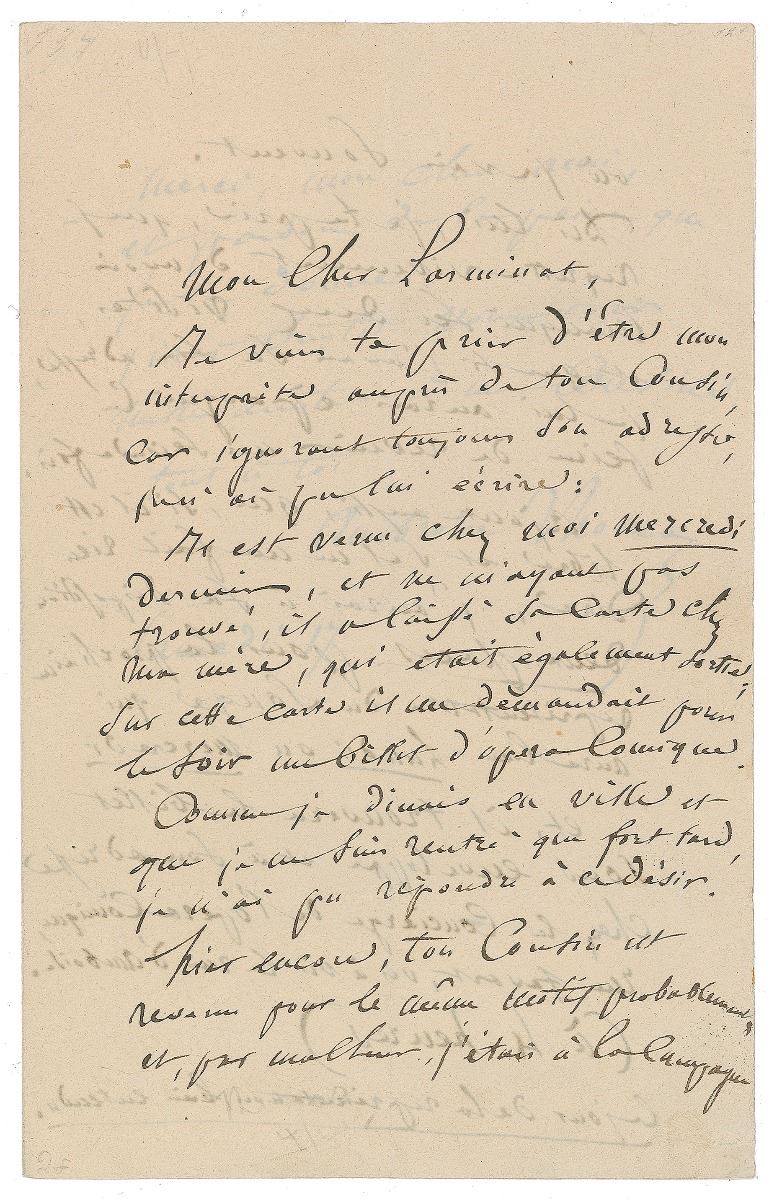 Mon Cher Larminat,
Je viens te prier d'être mon
interprète auprès de ton Cousin,
car ignorant toujours son adresse,
puis où lui écrire :
Il est venu chez moi mercredi
dernier, et ne m'ayant pas
trouvé, il a laissé sa carte chez
ma mère, qui était également sortie;
Sur cette carte il me demandait pour
le soir un billet d'opéra Comique.
Comme je dinais en ville et
que je ne suis rentré que fort tard,
je n'ai pu répondre à ce désir.
hier encore, ton Cousin est
revenu pour le même motif probablement
et, par malheur, j'étais à la Campagne